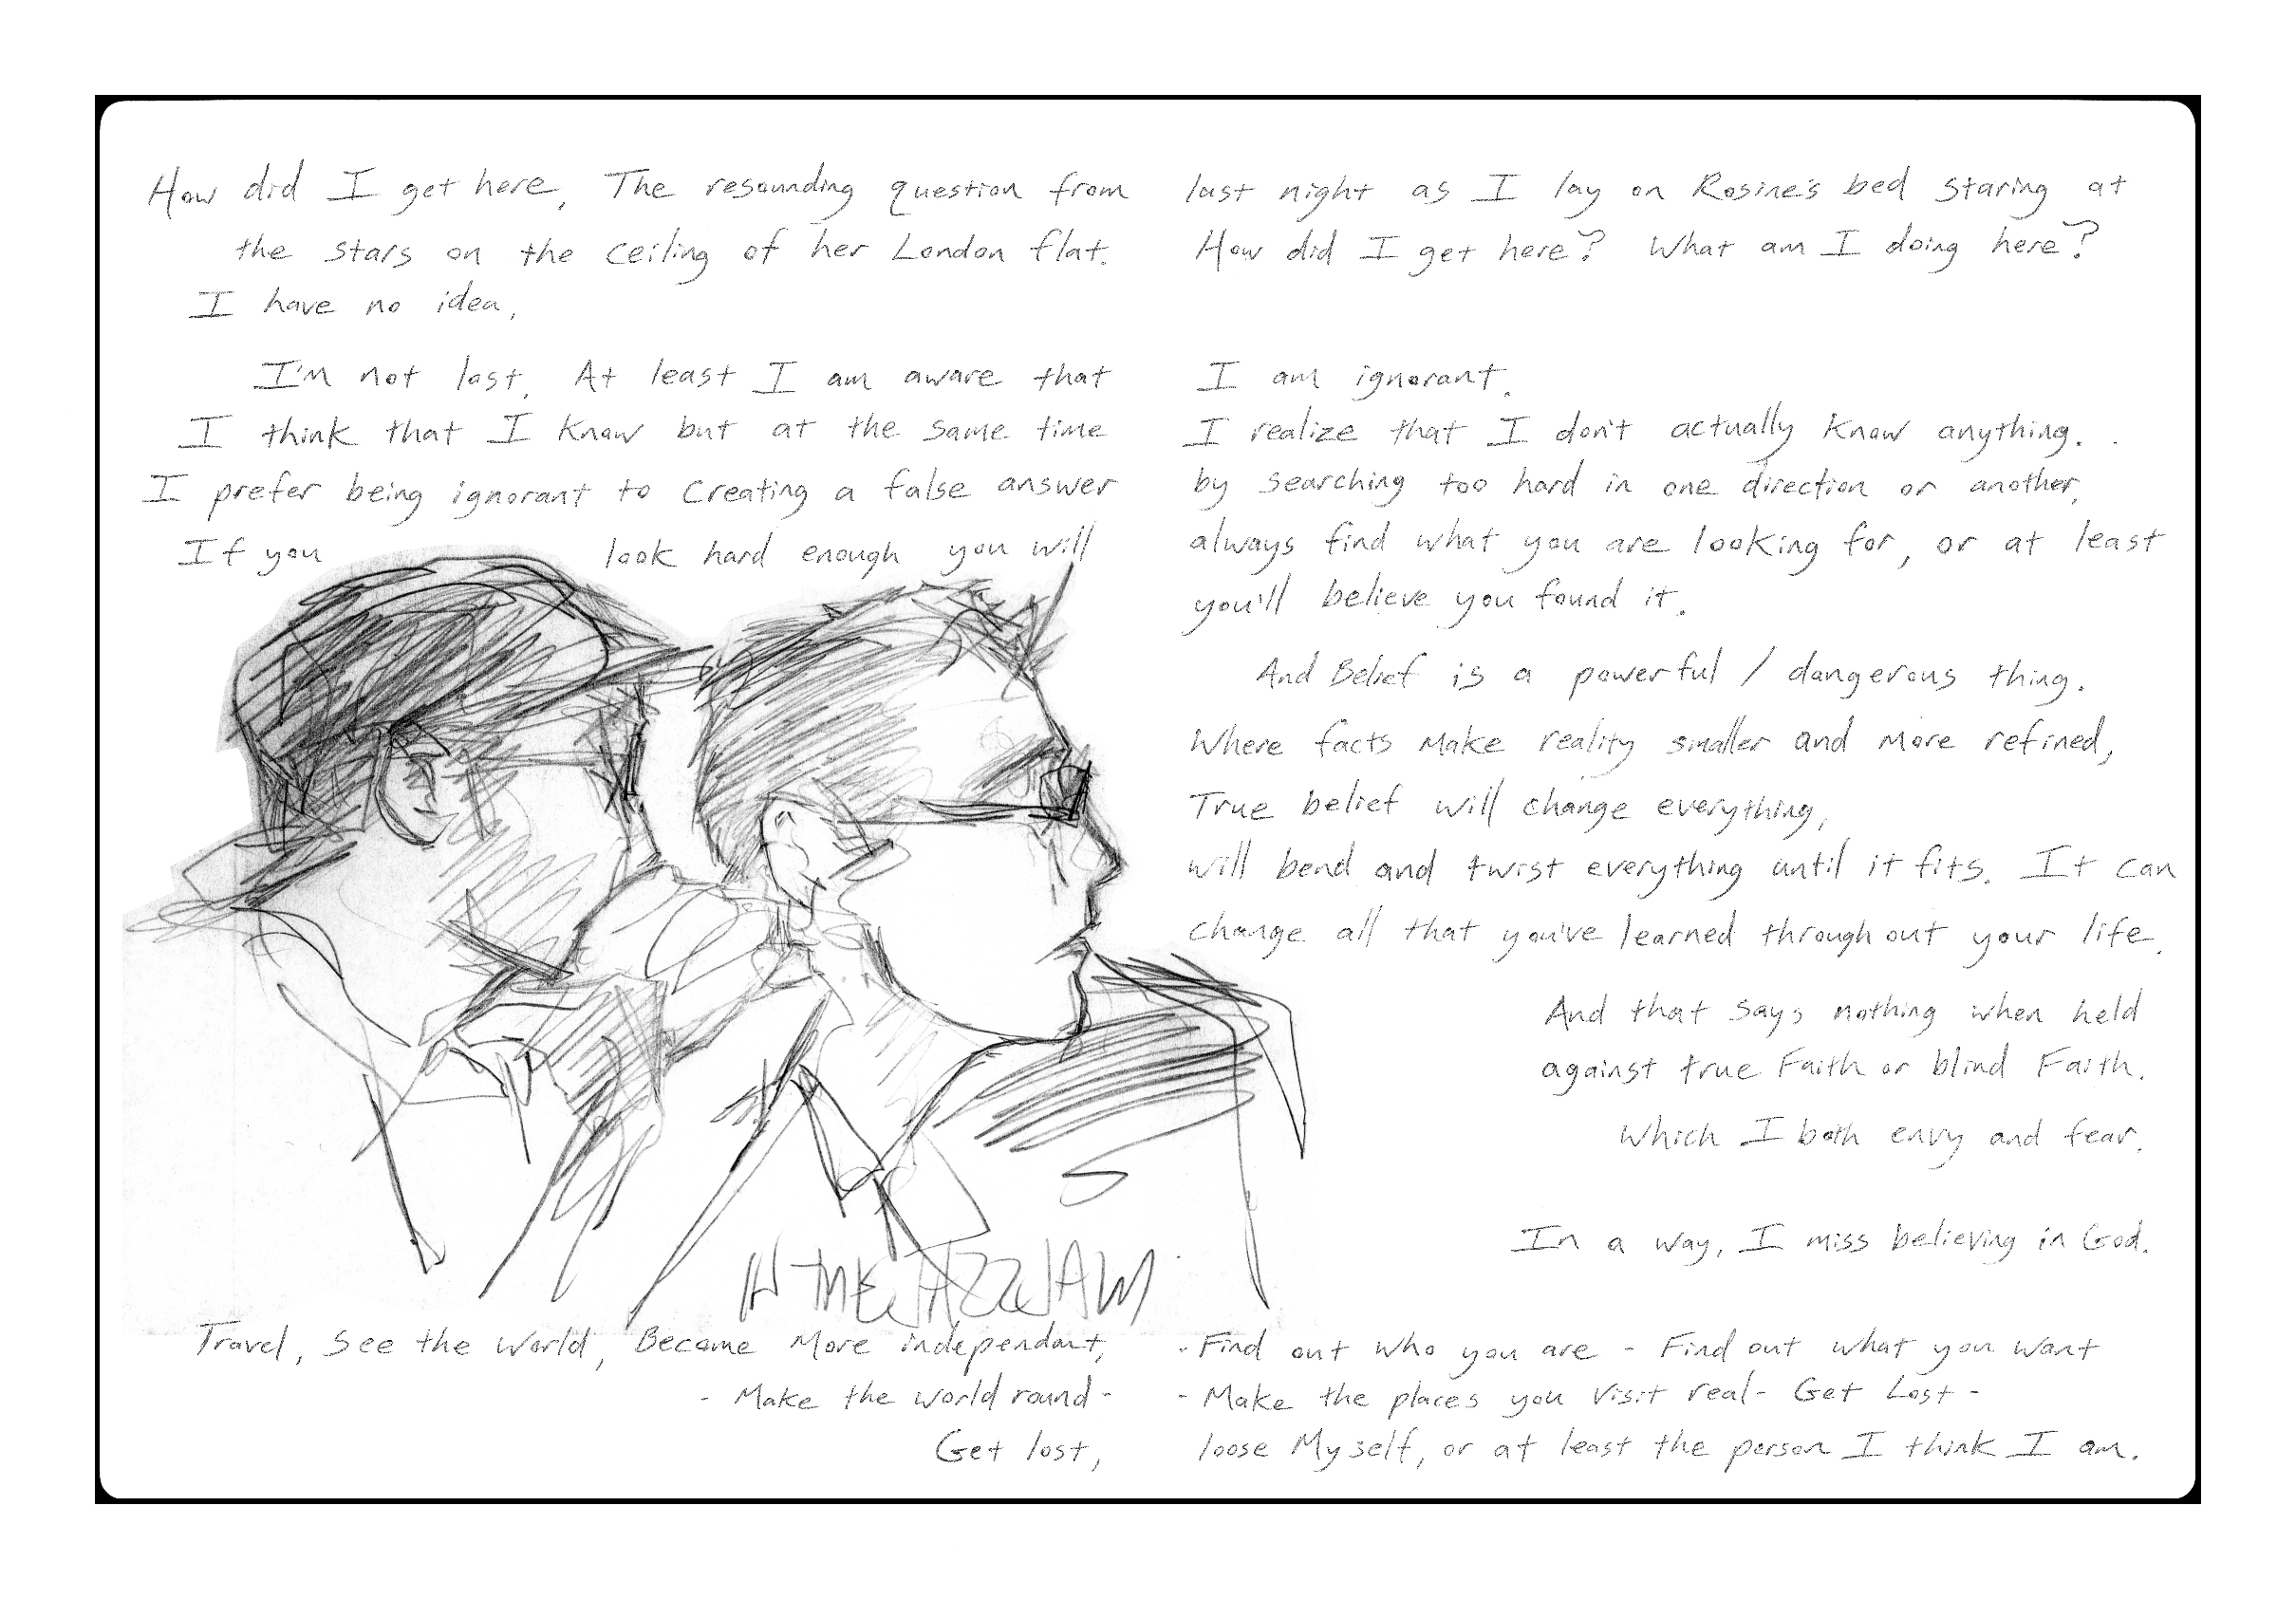 How did I get here, The resounding question from last night as I lay on Rosine's bed staring at
the stars on the ceiling of her London flat. How did I get here? What am I doing here?
I have no idea,
I'm not lost. At least I am aware that I am ignorant.
I think that I know but at the same time I realize that I don't actually know anything.
I prefer being ignorant to creating a false answer by searching too hard in one direction or another,
If you look hard enough you will always find what you are looking for, or at least
you'll believe you found it.
And Belief is a powerful / dangerous thing.
Where facts make reality smaller and more refined,
True belief will change everything,
will bend and twist everything until it fits. It can
change all that you've learned throughout your life.
And that says nothing when held
against true Faith or blind Faith.
Which I both envy and fear.
In a way, I miss believing in God.
IN THE JAZZ JAM
Travel, See the world, Become More independant, - Find out who you are - Find out what you want
- Make the world round - - Make the places you visit real - Get Lost -
Get lost, loose Myself, or at least the person I think I am.